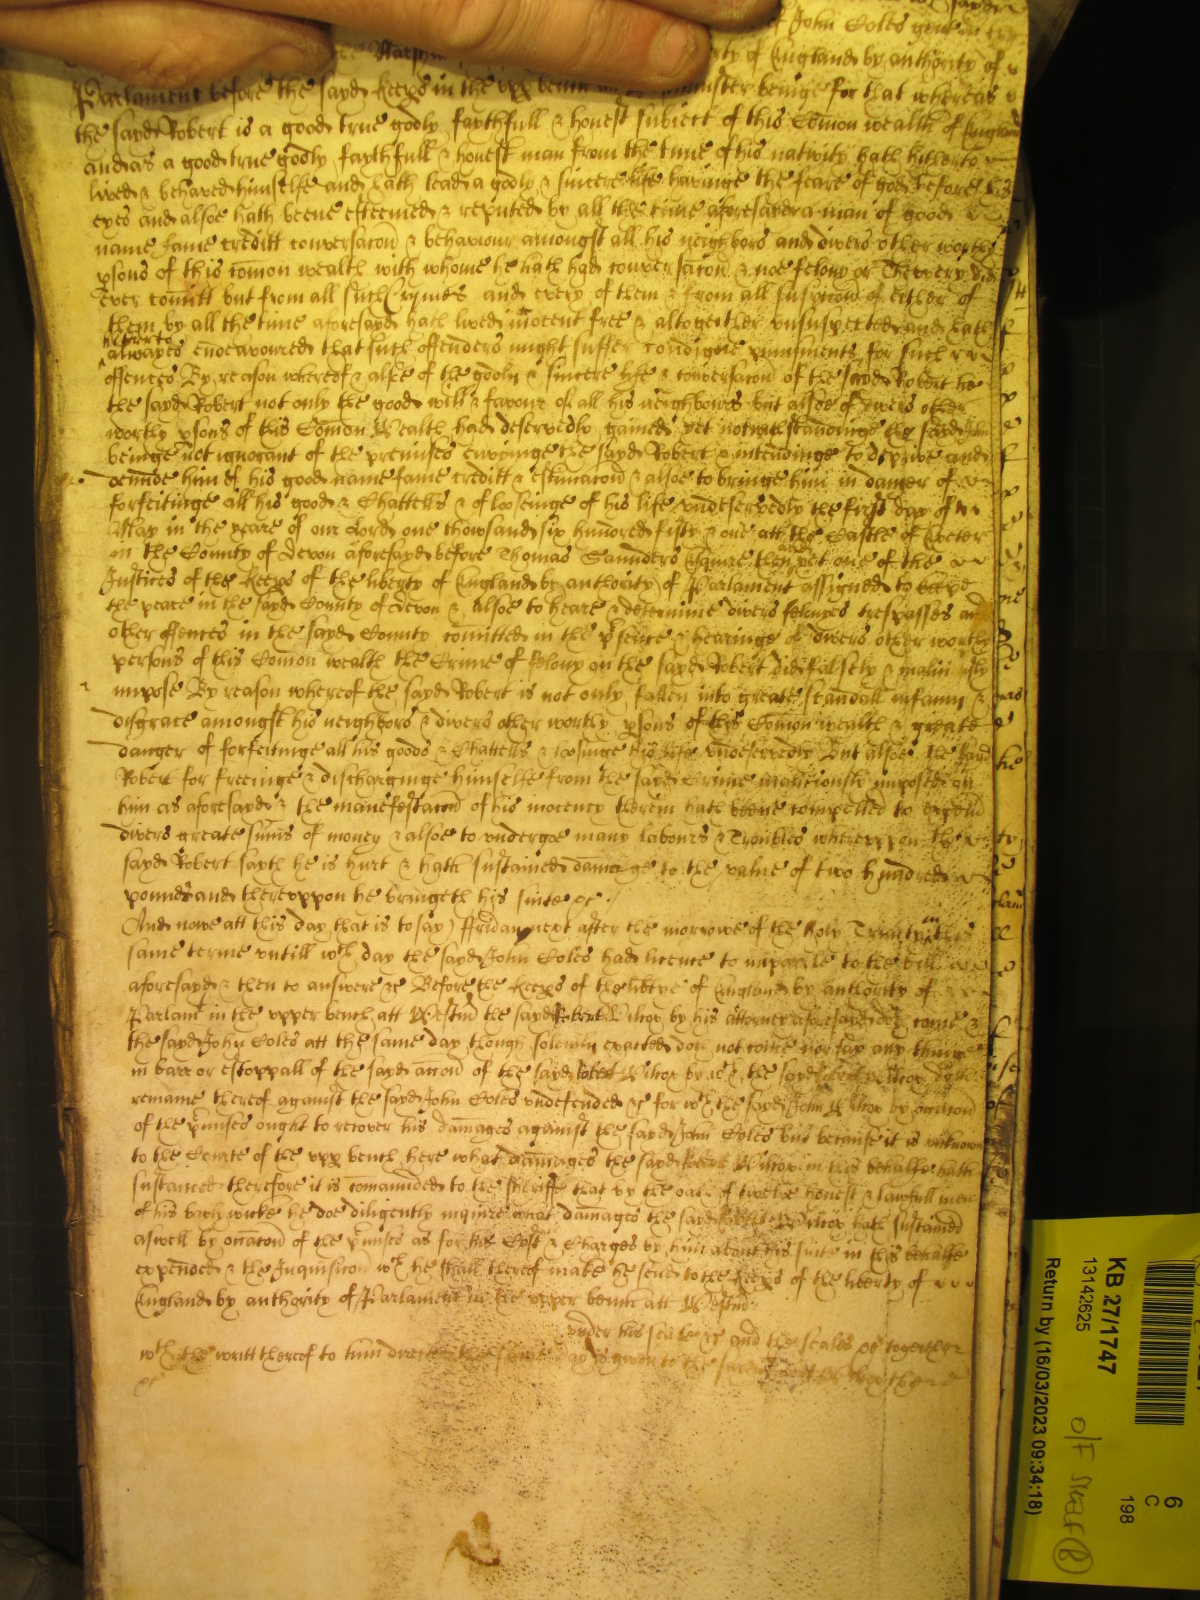 sayd
of John Coles gent in
ty of England by authority of
Parlament before the sayd Keeps in the upp bench att Westminster beinge for that whereas
the sayd Robert is a good true godly faythfull & honest subiect of this Comon wealth of England
and as a good true godly faythfull & honest man from the tyme of his nativity hath hitherto
lived & behaved himselfe and hath lead a godly & sincere life havinge the feare of god before his
eyes and alsoe hath beene esteemed & reputed by all the time aforesayd a man of good
name fame creditt conversacon & behaviour amongst all his neighbors and divers other worthy
psons of this comon wealth with whome he hath had conversacon & noe felony or Theevery did
ever comitt but from all such Crymes and every of them & from all suspicon of either of
them by all the time aforesayd hath lived inocent free & altogeither unsuspected and hath
hitherto
alwayes endeavoured that such offenders might suffer condigne punisments for such
offences By reason whereof & alsoe of the godly & sincere life & conversacon of the sayd Robert he
the sayd Robert not only the good will & favour of all his neighbours but alsoe of divers other
worthy psons of this Comon Wealth had deservedly gained yet notwithstandinge the sayd John
beinge not ignorant of the premises envyinge the sayd Robert & intendinge to deprive and
denude him of his good name fame creditt & estimacon & alsoe to bringe him in danger of
forfeitinge all his goods & Chattells & of looseinge of his life undeservedly the first day of
May in the yeare of our Lord one thowsand six hundred fifty & one att the Castle of Exeter
in the County of Devon aforesayd before Thomas Saunders Esquire then and yet one of the
Justices of the Keeps of the liberty of England by authority of Parlament assigned to keepe
the peace in the sayd County of Devon & alsoe to heare & determine divers felonyes trespasses and
other offences in the sayd County comitted in the psence & hearinge of divers other worthy
persons of this Comon wealth the Crime of felony on the sayd Robert did falsely & maliciously
impose By reason whereof the sayd Robert is not only fallen into greate scandall infamy &
disgrace amongst his neighbors & divers other worthy psons of this Comon wealth & greate
danger of forfeitinge all his goods & Chattells & loosinge his life undeservedly But alsoe the sayd
Robert for freeinge & discharginge himselfe from the sayd Crime maliciously imposed on
him as aforesayd & the manefestacon of his inocency therein hath beene compelled to expend
divers greate sums of money & alsoe to undergoe many labours & Troubles whereuppon the
sayd Robert sayth he is hurt & hath sustained damage to the value of two hundred
pounds and thereuppon he bringeth his suite &c
And nowe att this day that is to say Friday next after the morrowe of the holy Trinity in this
same terme untill wch day the sayd John Coles had licence to imparle to the bill
aforesayd & then to answere &c Before the Keeps of the libtye of England by authority of
Parlamt in the upper bench att Westm the sayd Robert Wilcox by his attorney aforesayd doe come &
the sayd John Coles att the same day though solemly exacted doth not come nor say any thinge
in barr or estoppall of the sayd accon of the sayd Robert Wilcox by wch the sayd Robert Wilcox doth
remaine thereof against the sayd John Coles undefended &c for wch the sayd John Wilcox by occasion
of the pmises ought to recover his damages against the sayd John Coles but because it is unknowne
to the Courte of the upp bench here what damages the sayd Robert Wilcox in this behalfe hath
sustained therefore it is comaunded to the Sheriffe that by the oath of twelve honest & lawfull men
of his baylywicke he doe diligently inquire what damages the sayd Robert Wilcox hath sustained
aswell by occacon of the pmises as for his Costs & Charges by him about his suite in this behalfe
expended & the Inquisicon wch he shall thereof make he send to the Keeps of the liberty of
England by authority of Parlament in the upper bench att Westm
under his seale &c and the seales &c together
wth the writt thereof to him directed the same day is given to the sayd Robert Wilcox there
&c
KB 27/1747
13142625
Return by (16/03/2023 09:34:18)
6
C
198